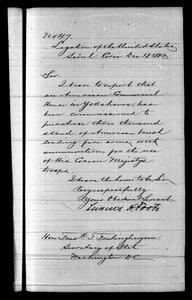 Legation of the United States
Seoul Corea Dec. 18, 1883
Sir.
I have to report that
an American Commercial
House in Yokohama, has
been commissioned to
purchase three thousand
stand of American breech
loading fire arms, with
ammunition for the use
of His Corean Majesty's
troops.
I have the honor to be, Sir
Very respectfully
Your Obedient Servant
Lucius H. Foote
Hon. Fred'k T. Frelinghuysen
Secretary of State
Washington D.C.